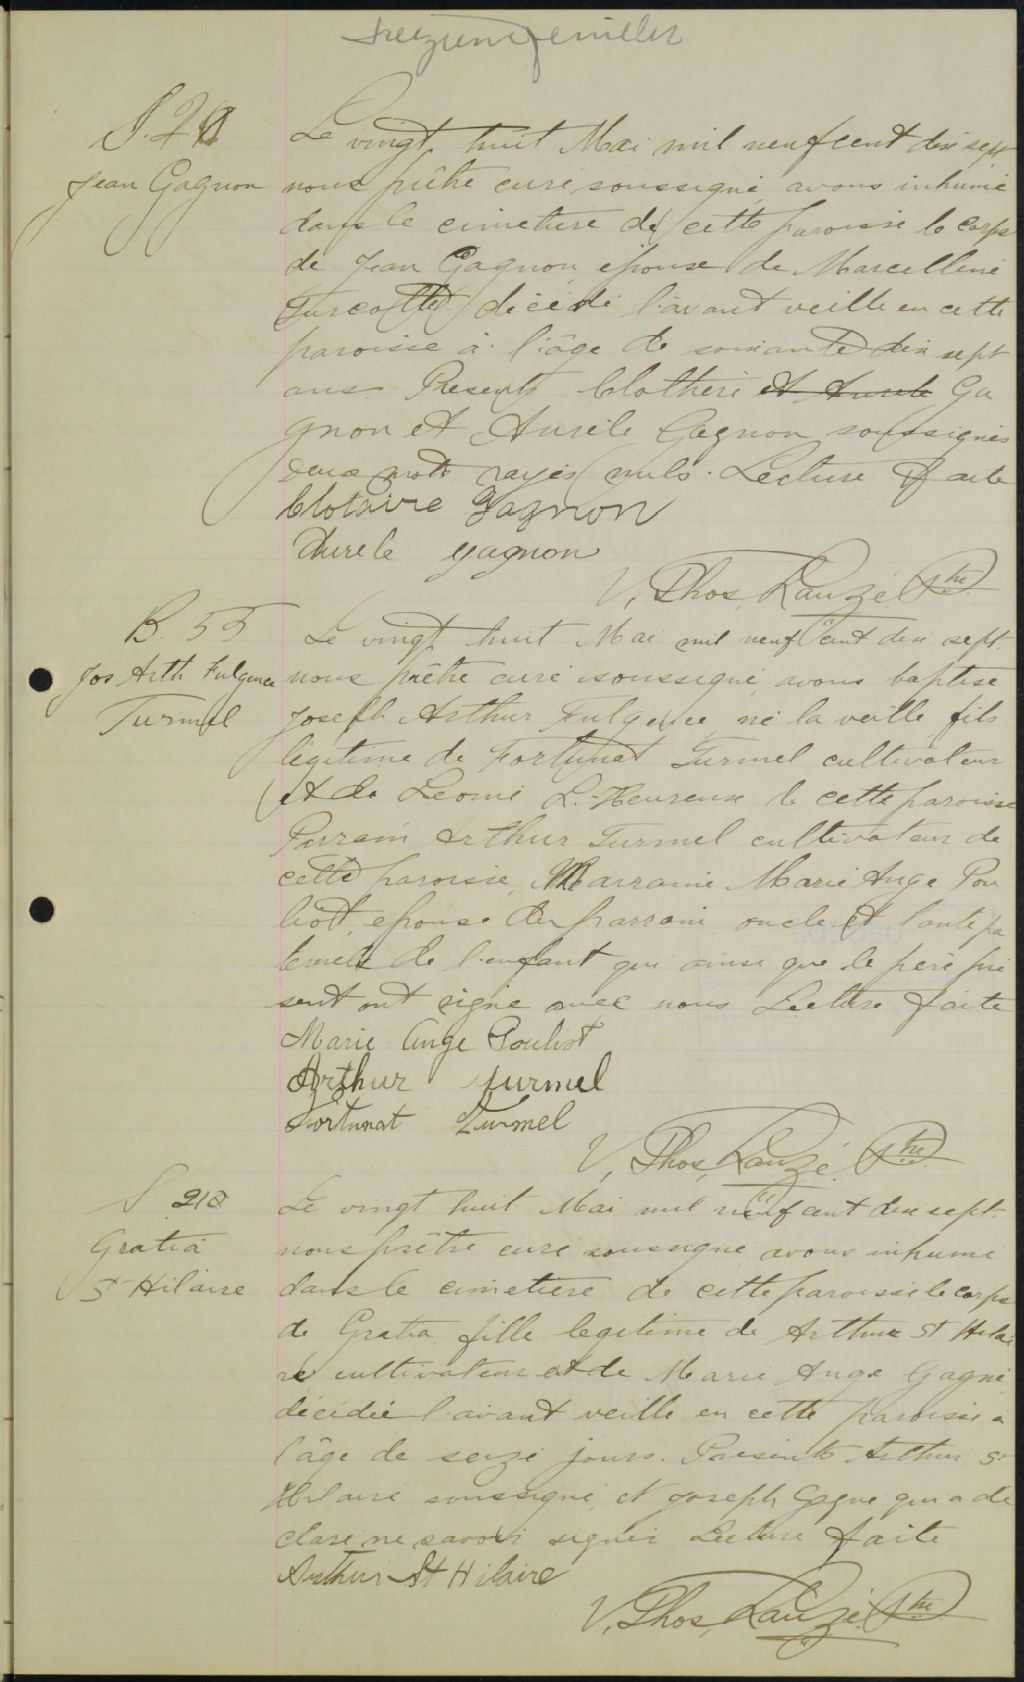 treizieme feuillet
S. 20
Jean Gagnon
Le vingt huit Mai mil neuf cent dix sept
nous prêtre curé soussigné, avons inhumé
dans le cimetiere de cette paroisse le corps
de Jean Gagnon épouse de Marcelline
Turcotte décédé l'avant veille en cette
paroisse à l'âge de soixante dix sept
ans. Presents Clotheri et Aurele Ga
gnon et Aurèle Gagnon soussignés
deux mots rayés nuls. Lecture faite
Clotaire Gagnon
Aurele gagnon
V, Thos, Lauzé, Ptre
B. 55
Jos Arth Fulgence
Turmel
Le vingt huit Mai mil neuf cent dix sept.
nous prêtre curé soussigné, avons baptisé
Joseph Arthur Fulgence né la veille fils
légitime de Fortunat Turmel cultivateur
et de Leonie L'Heureux de cette paroisse
Parrain Arthur Turmel cultivateur de
cette paroisse, Marraine Marie Ange Pou
liot, epouse du parrain oncle et tante pa
ternels de l'enfant qui ainsi que le père pré
sent ont signé avec nous Lecture faite
Marie Ange Pouliot
Arthur Turmel
Fortunat Turmel
V, Thos, Lauzé, Ptre
S. 21
Gratia
St Hilaire
Le vingt huit Mai mil neuf cent dix sept.
nous prêtre curé soussigné avons inhumé
dans le cimetiere de cette paroisse le corps
de Gratia fille legitime de Arthur St Hilai
re cultivateur et de Marie Ange Gagné
décédée l'avant veille en cette paroisse à
l'âge de seize jours. Présents Arthur St
Hilaire soussigné, et Joseph Gagné qui a dé
claré ne savoir signer Lecture faite
Arthur St Hilaire
V, Thos, Lauzé, Ptre